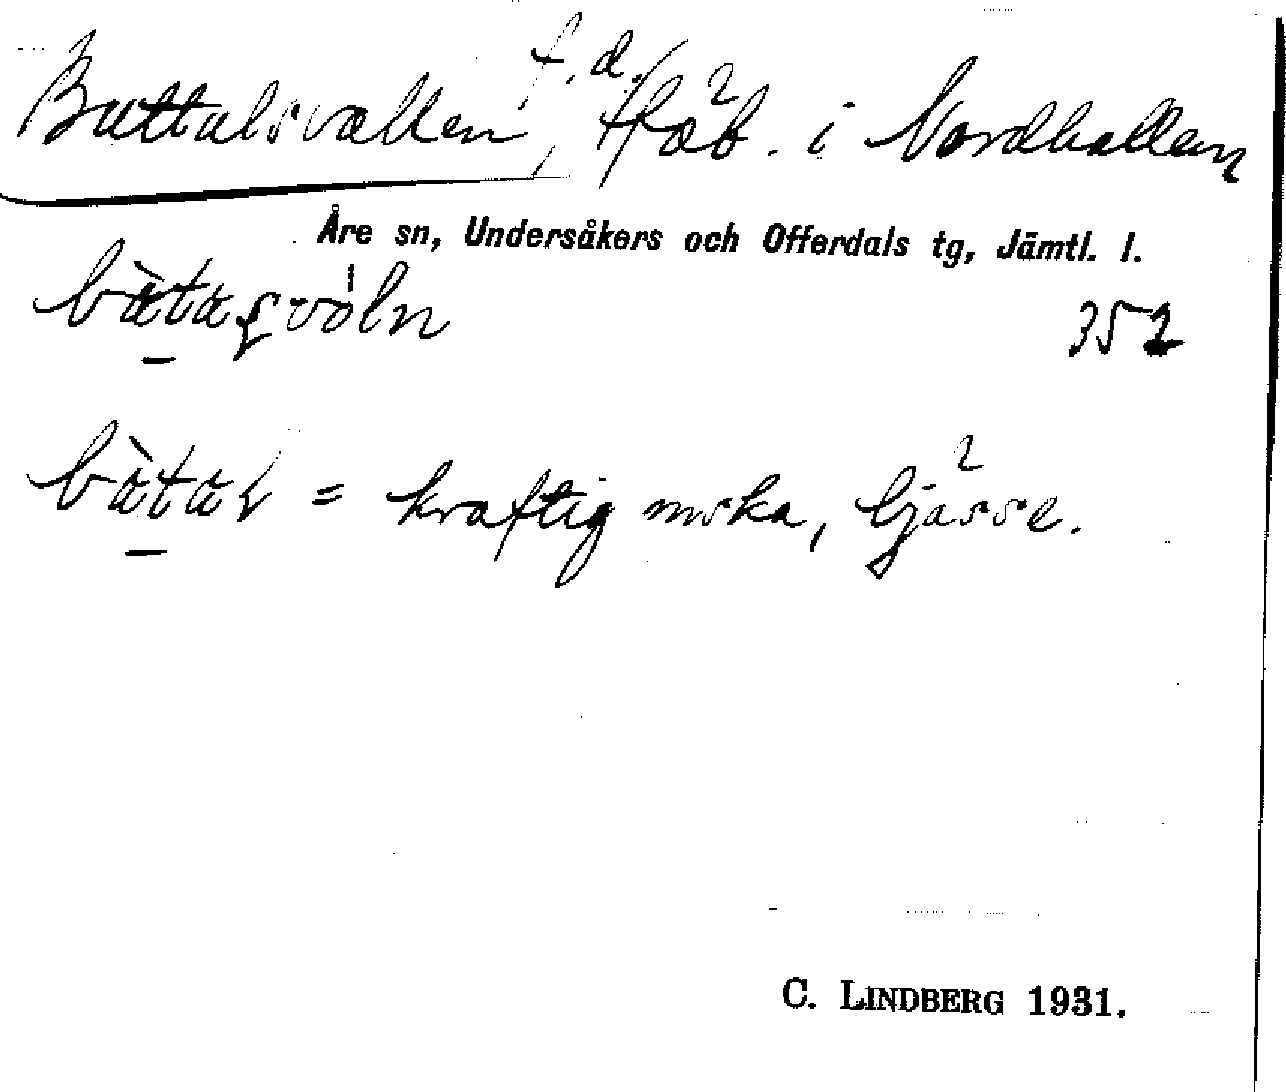 Buttalsvallen, f.d. fäb. i Nordhallen
Åre sn, Undersåkers och Offerdals tg, Jämtl. l.
352
= kraftig mska, bjässe.
C. LINDBERG 1931.